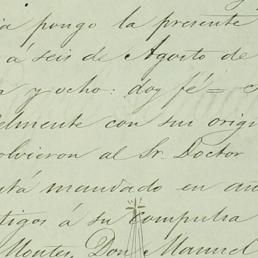 ia pongo la presente
á seis de Agosto de
a y ocho: doy fé =
elmente con su orig
volvieron al Sr. Doctor
está mandado en au
tigos á su compulsa
Montes, Don Manuel